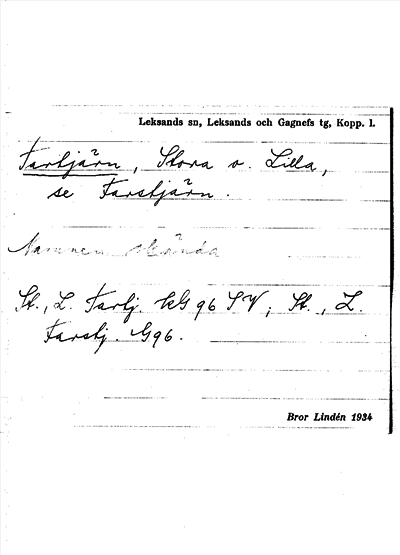 Leksands sn, Leksands och Gagnefs tg, Kopp. l.
Tartjärn, Stora o. Lilla,
se Tarstjärn.
Namnen okända
St., L. Tartj. kG 96 SV; St., L.
Tarstj. G96.
Bror Lindén 1934